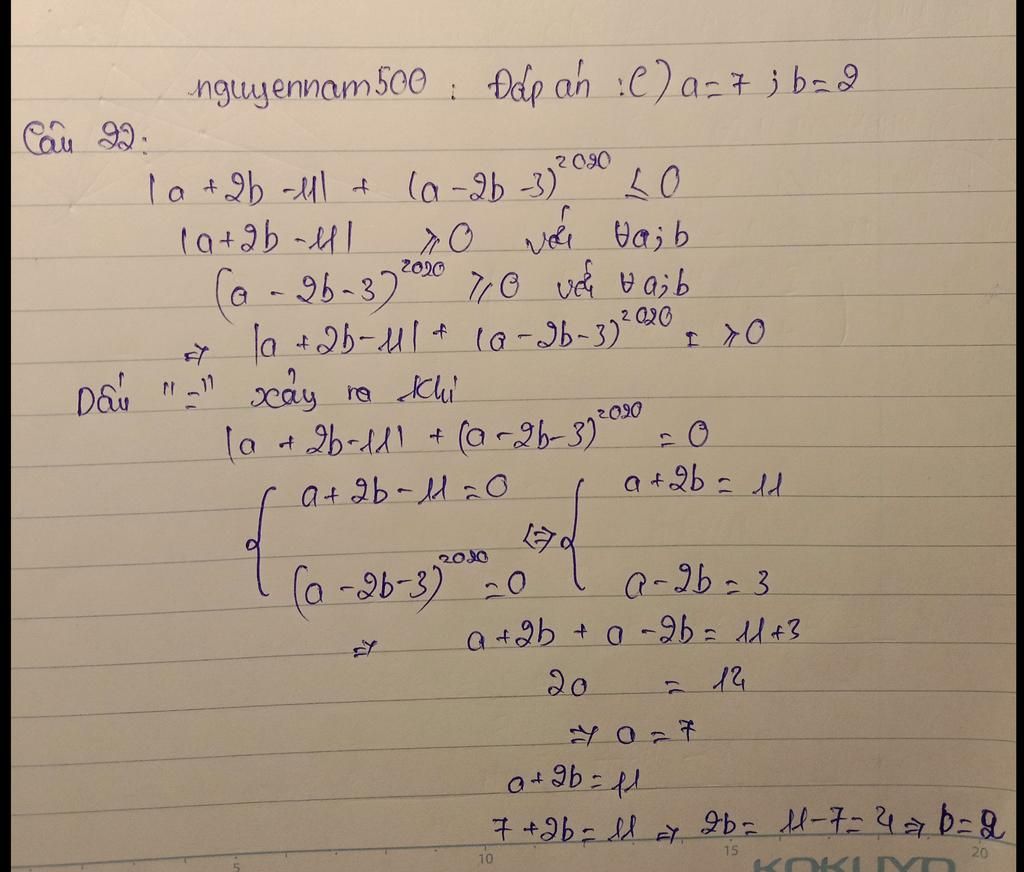 nguyennam500 : Đáp án : C) a = 7 ; b = 2
Câu 22:
|a + 2b - 11| + (a - 2b - 3)^2020 ≤ 0
|a + 2b - 11| ≥ 0 với ∀a;b
(a - 2b - 3)^2020 ≥ 0 với ∀a;b
⇒ |a + 2b - 11| + (a - 2b - 3)^2020 = ≥ 0
Dấu "=" xảy ra khi
|a + 2b - 11| + (a - 2b - 3)^2020 = 0
{ a + 2b - 11 = 0 ⇔ { a + 2b = 11
(a - 2b - 3)^2020 = 0 a - 2b = 3
⇒ a + 2b + a - 2b = 11 + 3
2a = 14
⇒ a = 7
a + 2b = 11
7 + 2b = 11 ⇒ 2b = 11 - 7 = 4 ⇒ b = 2
5 10 15 20
KOKUYO